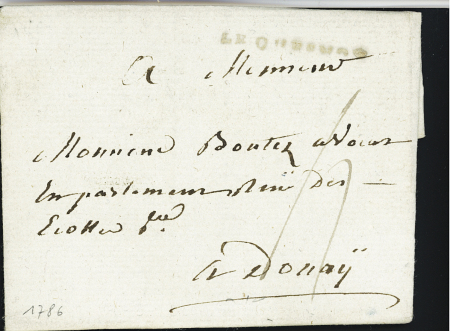 LE QUESNOY
A Monsieur
Monsieur Boutez avocat
En parlement Rüe des
Ecolles
A Doüaÿ
1786